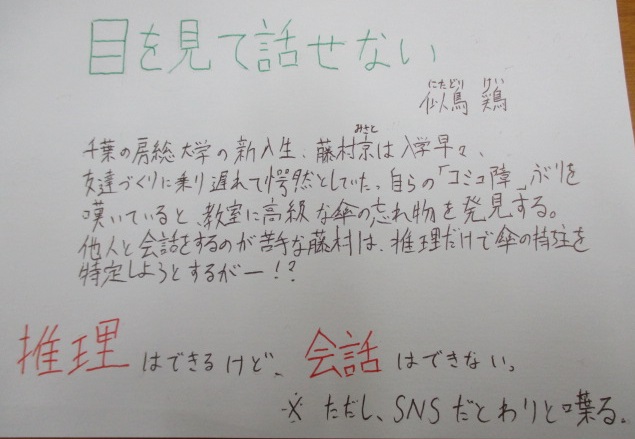 目を見て話せない
にたどり けい
似鳥 鶏
みさと
千葉の房総大学の新入生、藤村京は入学早々、
友達づくりに乗り遅れて愕然としていた。自らの「コミュ障」ぶりを
嘆いていると、教室に高級な傘の忘れ物を発見する。
他人と会話をするのが苦手な藤村は、推理だけで傘の持主を
特定しようとするがー!?
推理はできるけど、会話はできない。
※ ただし、SNSだとわりと喋る。